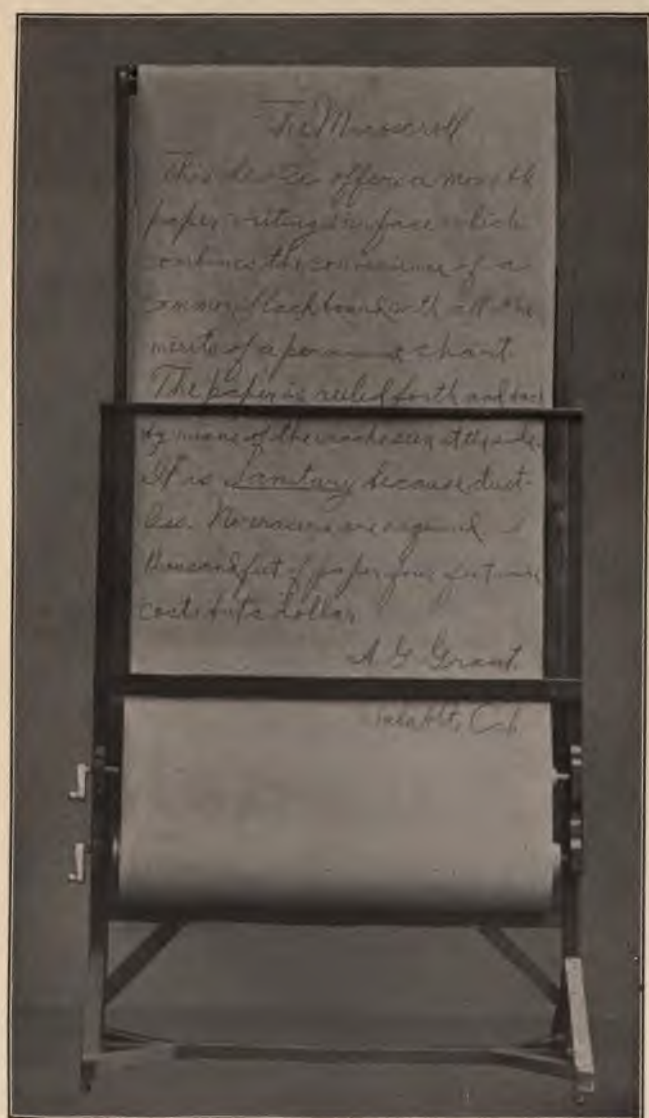 This device offers a movable
paper writing surface which
combines the convenience of a
common blackboard with all the
merits of a permanent chart.
The paper is reeled forth and back
by means of the cranks seen at the side.
It is Sanitary because dust-
less. No erasers are required.
thousand feet of paper four feet wide
costs but a dollar
A. G. Grant.